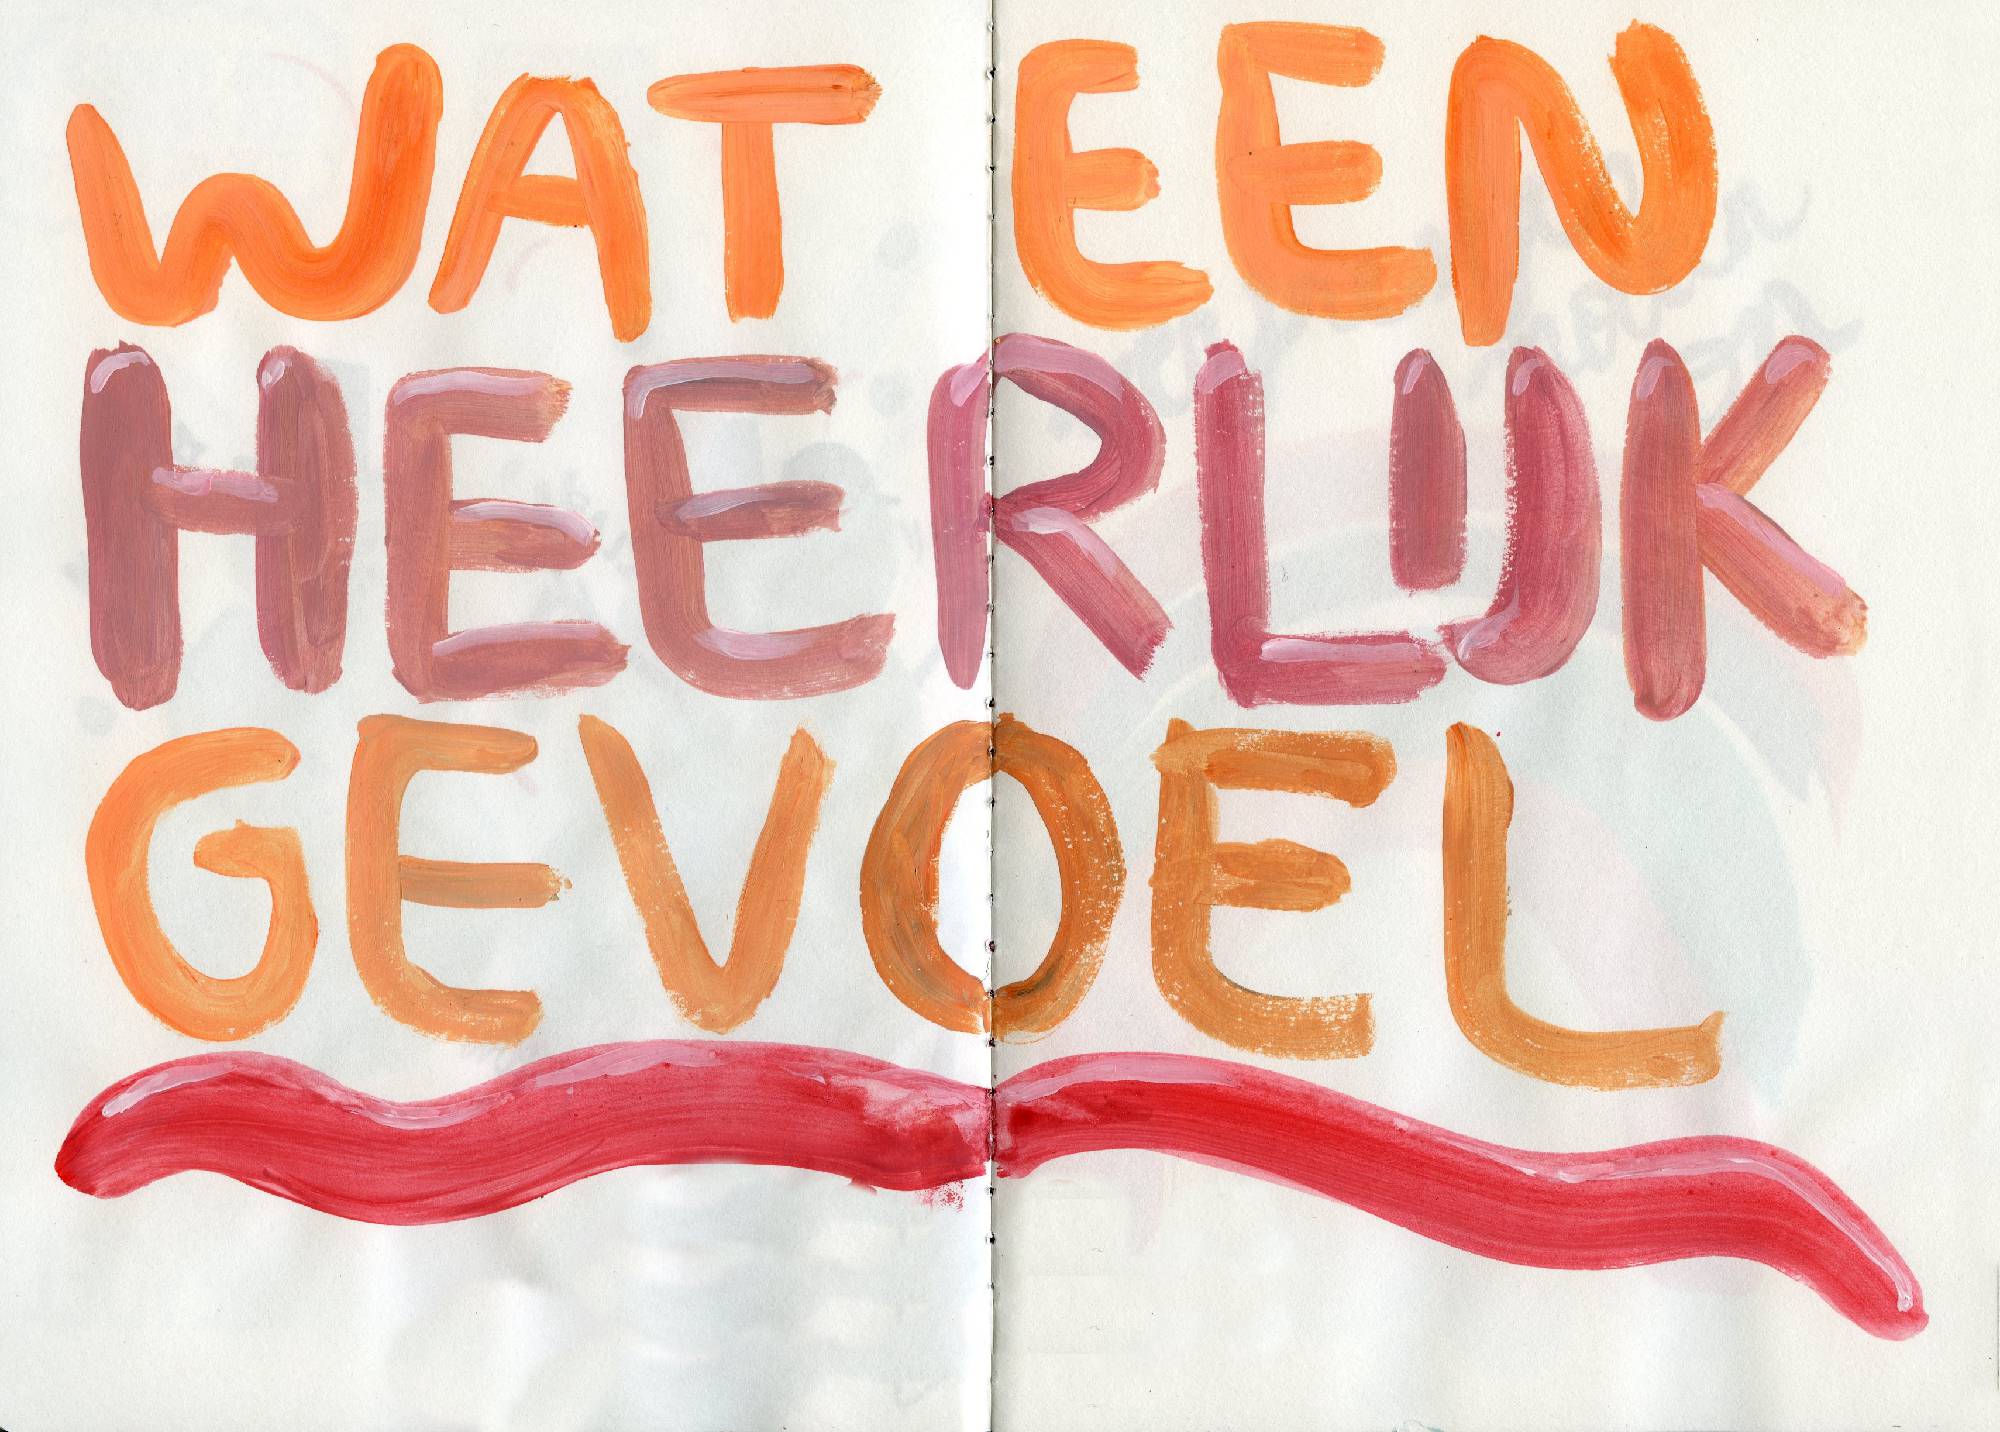 WAT EEN
HEERLIJK
GEVOEL